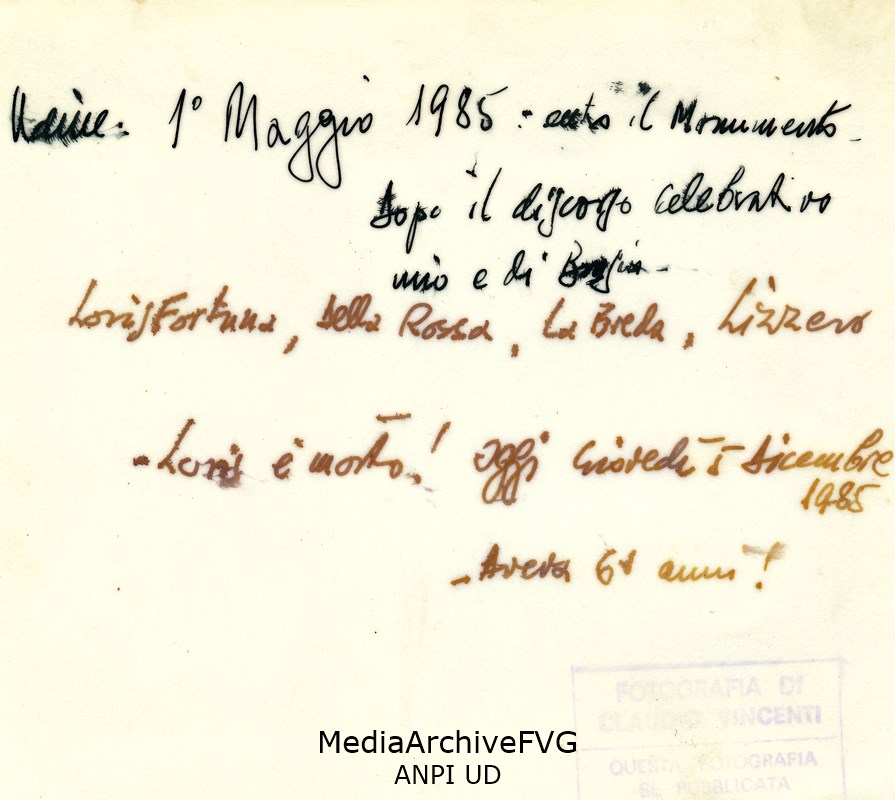 Udine. 1° Maggio 1985: entro il Monumento
dopo il discorso celebrativo
mio e di
Loris Fortuna, Della Rossa, La Breda, Lizzero
- Loris è morto! Oggi Giovedì 5 dicembre
1985
- Aveva 61 anni!
FOTOGRAFIA DI
CLAUDIO VINCENTI
QUESTA FOTOGRAFIA
SE PUBBLICATA
MediaArchiveFVG
ANPI UD